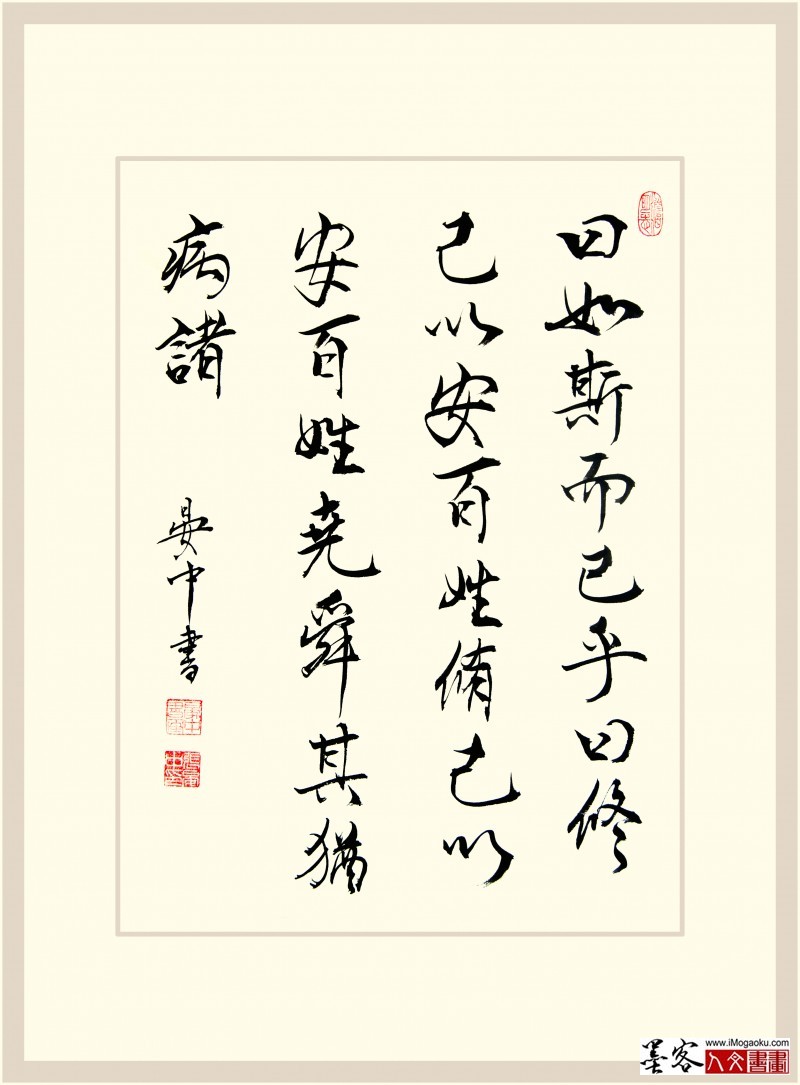 曰如斯而已乎曰修
己以安百姓脩己以
安百姓堯舜其猶
病諸
晏中書
墨客
www.iMogaoku.com
人文書畫